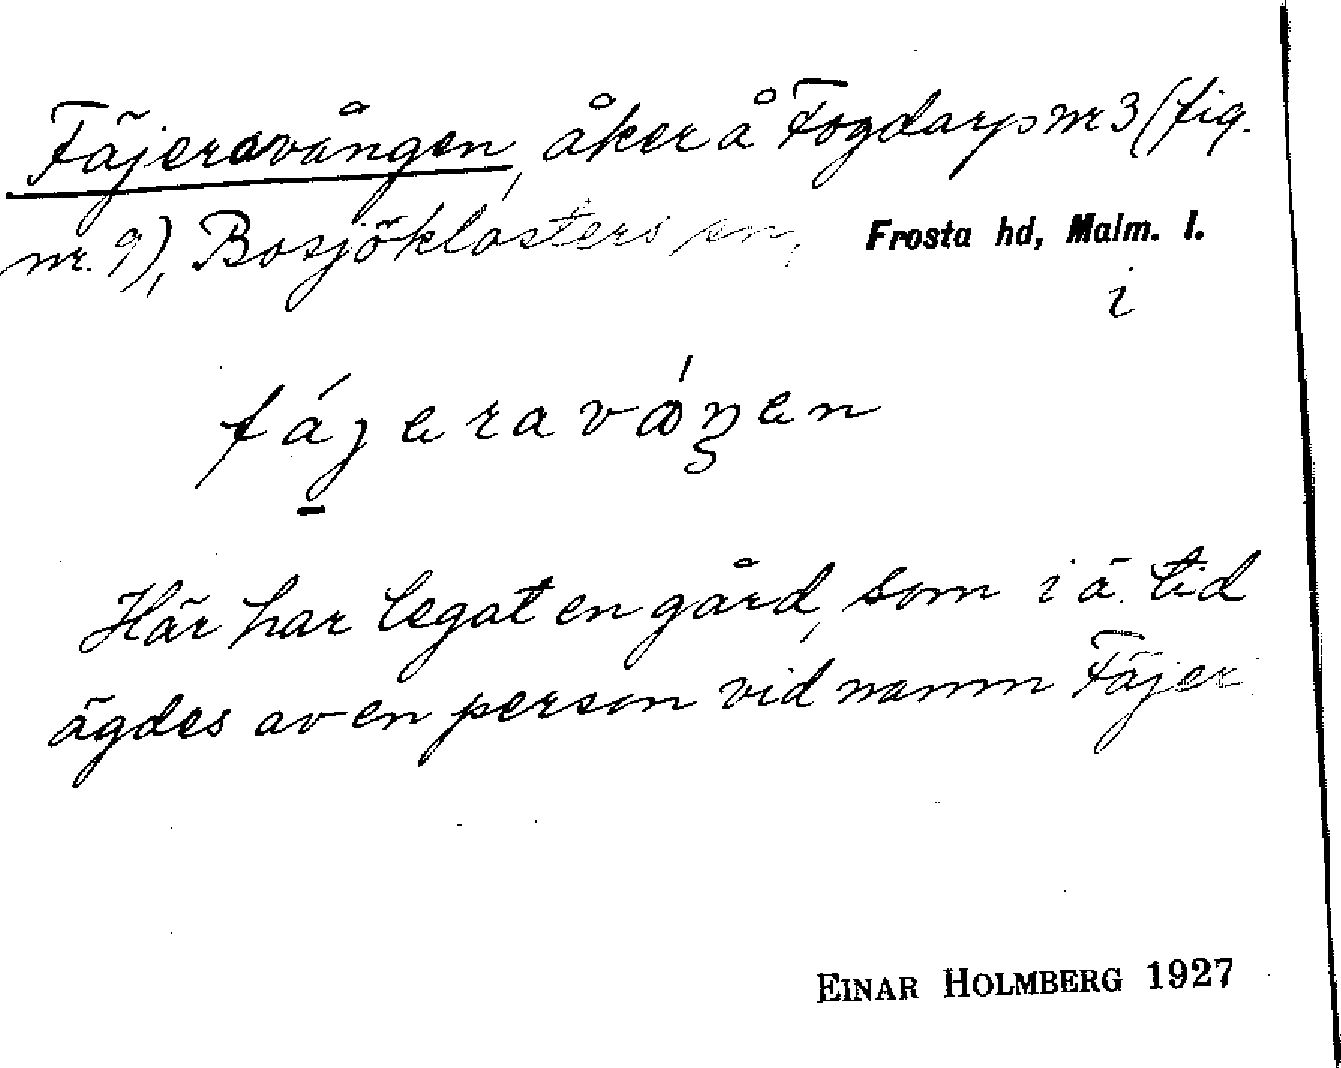 Fäjeravången, åker å Fogdarp nr 3 (fig.
nr. 9), Bosjöklosters sn, Frosta hd, Malm. l.
i
fájeravåŋen
Här har legat en gård, som i ä. tid
ägdes av en person vid namn Fäjer
EINAR HOLMBERG 1927